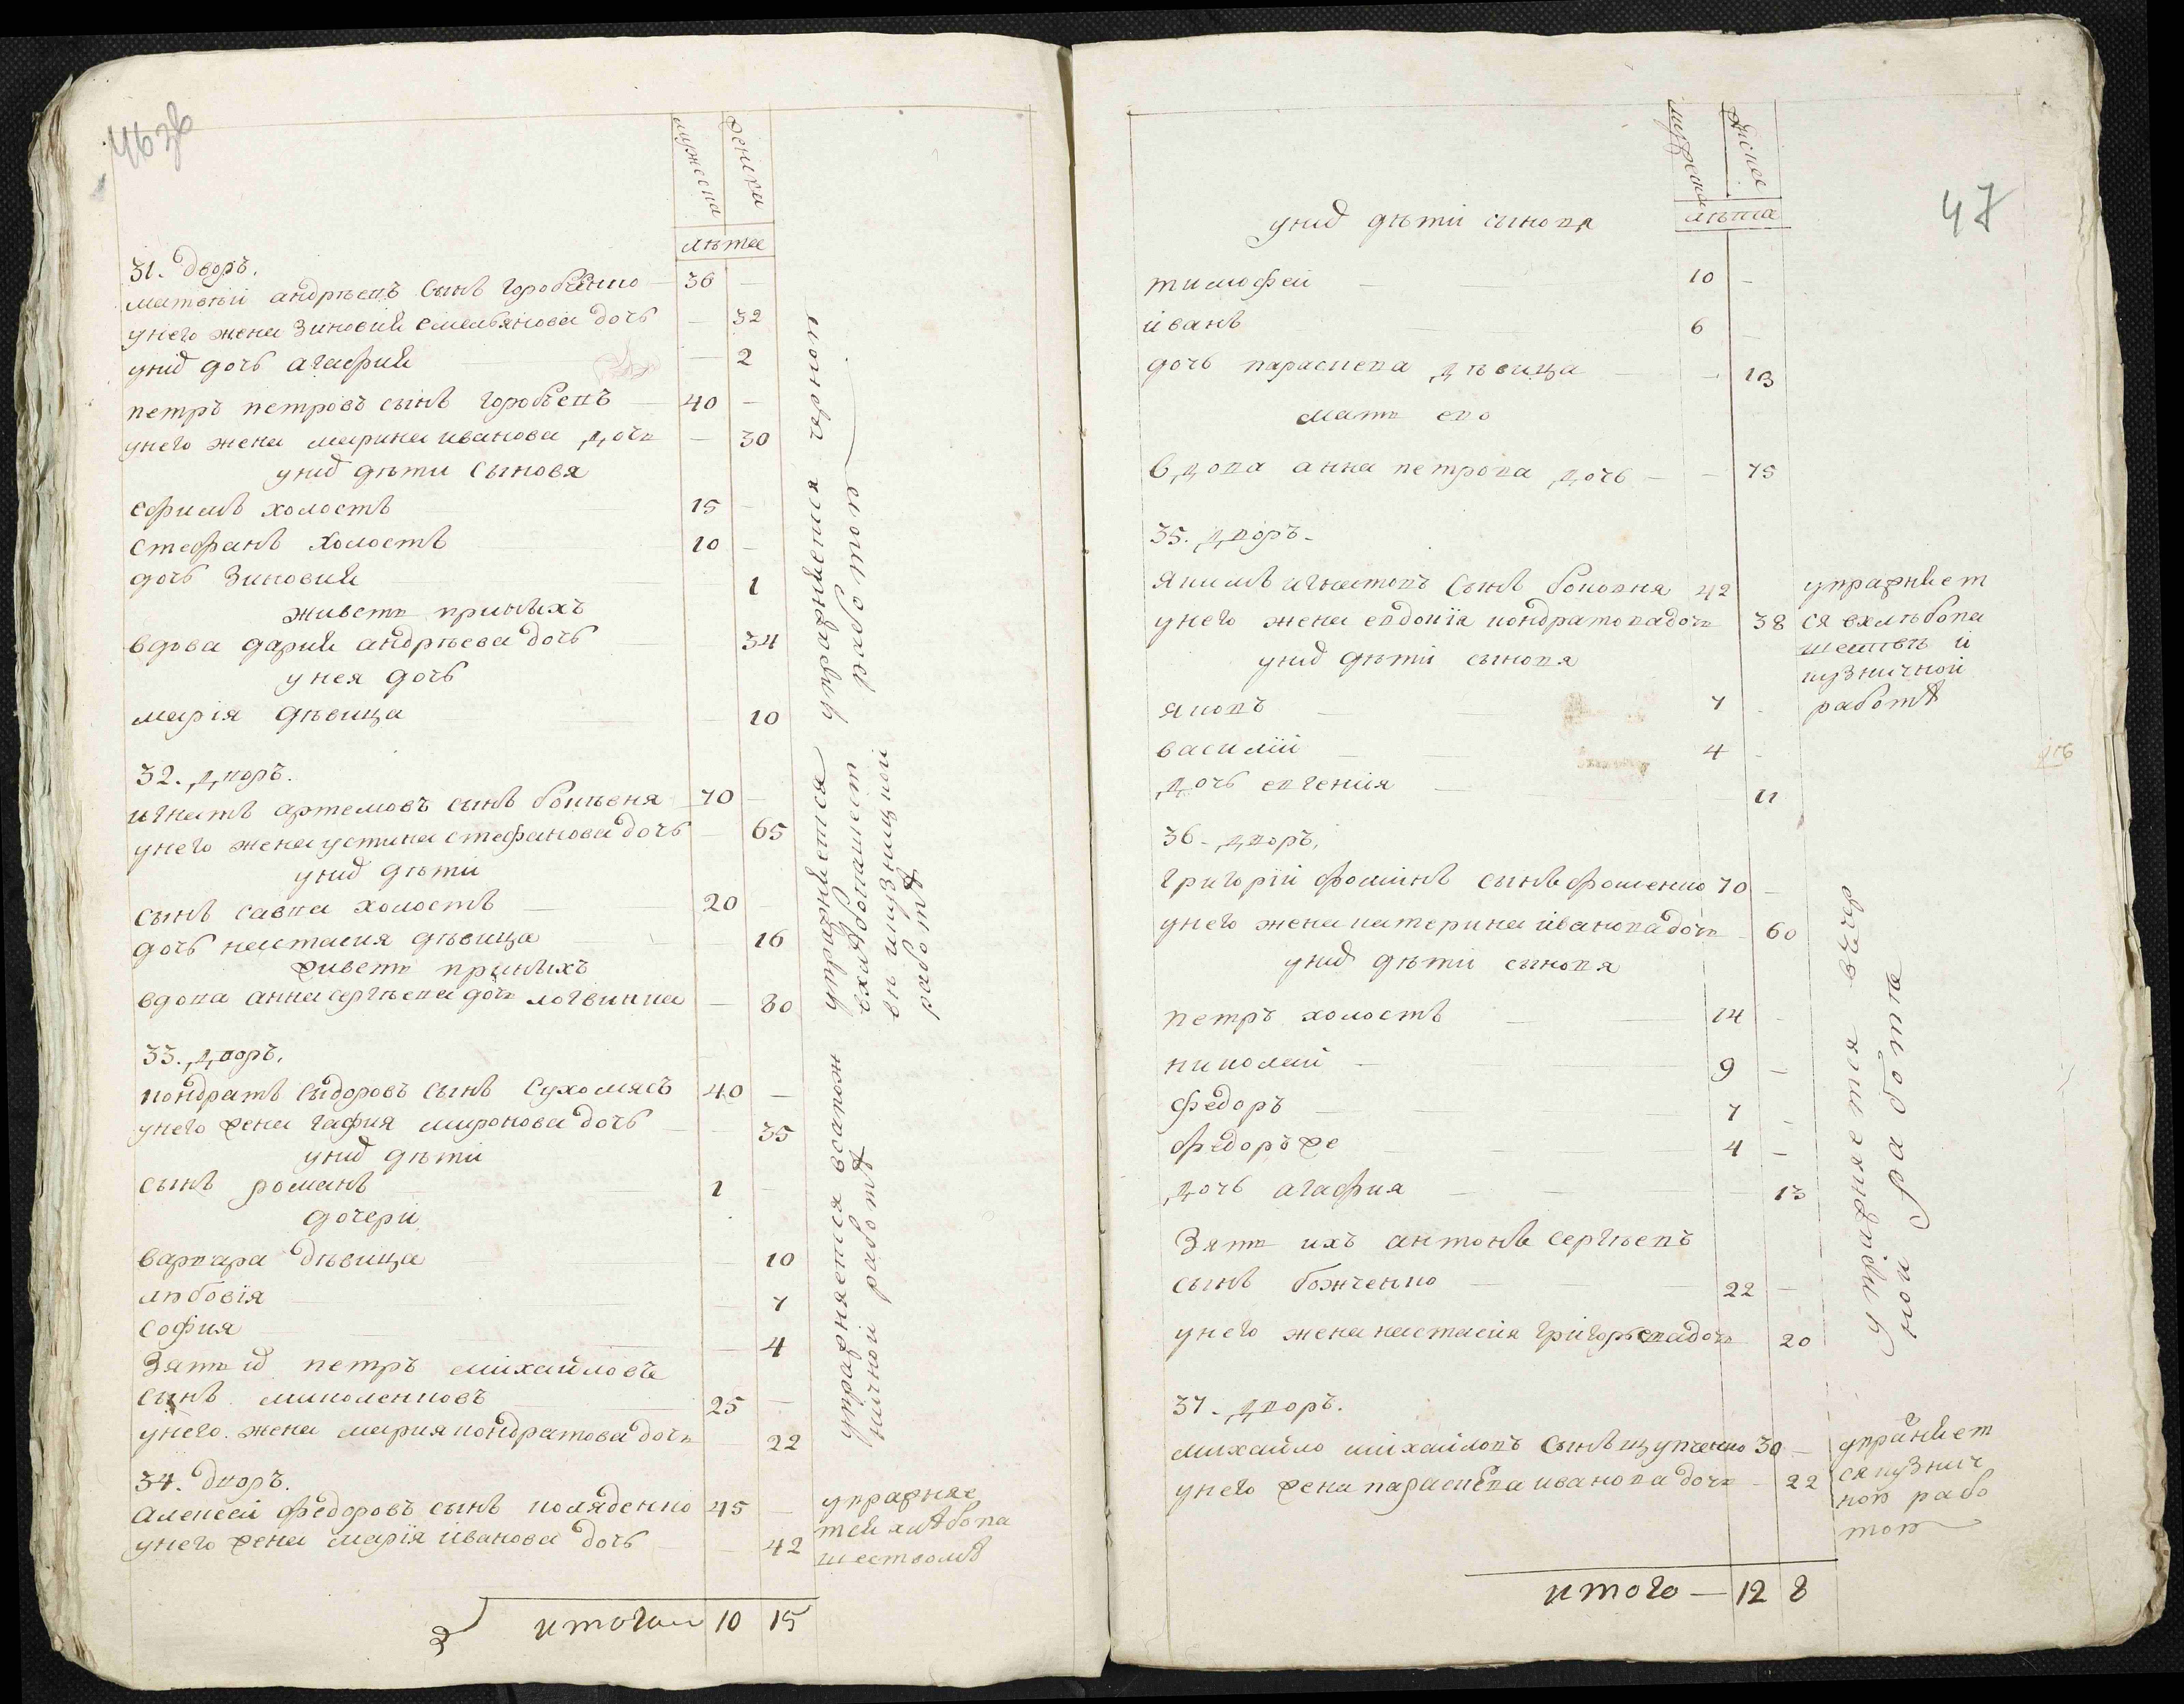 46 зв
мужеска
женска
лѣта
31. дворъ.
матвѣй андрѣевъ сынъ горобенко 36 —
унего жена Зиновия емельянова дочь — 32
уних дочь агафия — 2
петръ петровъ сынъ горобъевъ — 40 —
унего жена марина иванова дочь — 30
уних дѣти сыновя
ефимъ холостъ 15 —
стефанъ холостъ 10 —
дочь Зиновия 1
живетъ приныхъ
вдова дария андрѣева дочь 34
унея дочь
марія дѣвица — 10
упражняется чорной
работой
32. дворъ.
игнатъ артемовъ сынъ боковня 70 —
унего жена устина стефанова дочь — 65
уних дѣти
сынъ савка холостъ — 20 —
дочь настасия дѣвица 16
живетъ приныхъ
вдова анна сергѣева дочь логвинка — 80
упражняется
вхлѣбопашест
вѣ икузницкой
работѣ
33. дворъ.
кондратъ сыдоровъ сынъ сухомясъ 40 —
унего жена гафия миронова дочь — 35
уних дѣти
сынъ романъ 1 —
дочери
варвара дѣвица — 10
любовія — 7
софия — 4
Зять их петръ михайловъ
сынъ миколенковъ 25 —
унего жена мария кондратова дочь 22
упражняется всапож
ничной работѣ
34. дворъ.
алексей федоровъ сынъ коляденко 45 —
унего жена марія иванова дочь — 42
упражняе
тся хлѣбопа
шествомъ
итого 10 15
47
мужеска
женска
лѣта
уних дѣти сыновя
тимофей — — 10 —
иванъ 6 —
дочь параскева дѣвица — — 13
мать его
вдова анна петрова дочь — — 75
35. дворъ.
якимъ игнатовъ сынъ боковня 42
унего жена евдокія кондратова дочь 38
уних дѣти сыновя
яковъ — — 7 —
василій — — 4 —
дочь евгения — 11
упражняет
ся вхлѣбопа
шествѣ и
кузничной
работѣ
36. дворъ.
григорій фоминъ сынъ фоменко 70 —
унего жена катерина иванова дочь 60
уних дѣти сыновя
петръ холостъ — — 14 —
николай — — 9 —
федоръ — — 7 —
федоръ же — — 4 —
дочь агафия — — — 13
Зять ихъ антонъ сергѣевъ
сынъ божченко — — 22 —
унего жена настасия григорьева дочь 20
упражняется вчор
ной работѣ
37. дворъ.
михайло михайловъ сынъ щупченко 30 —
унего жена параскева иванова дочь — 22
упражняет
ся кузнич
ной рабо
той
итого — 12 8